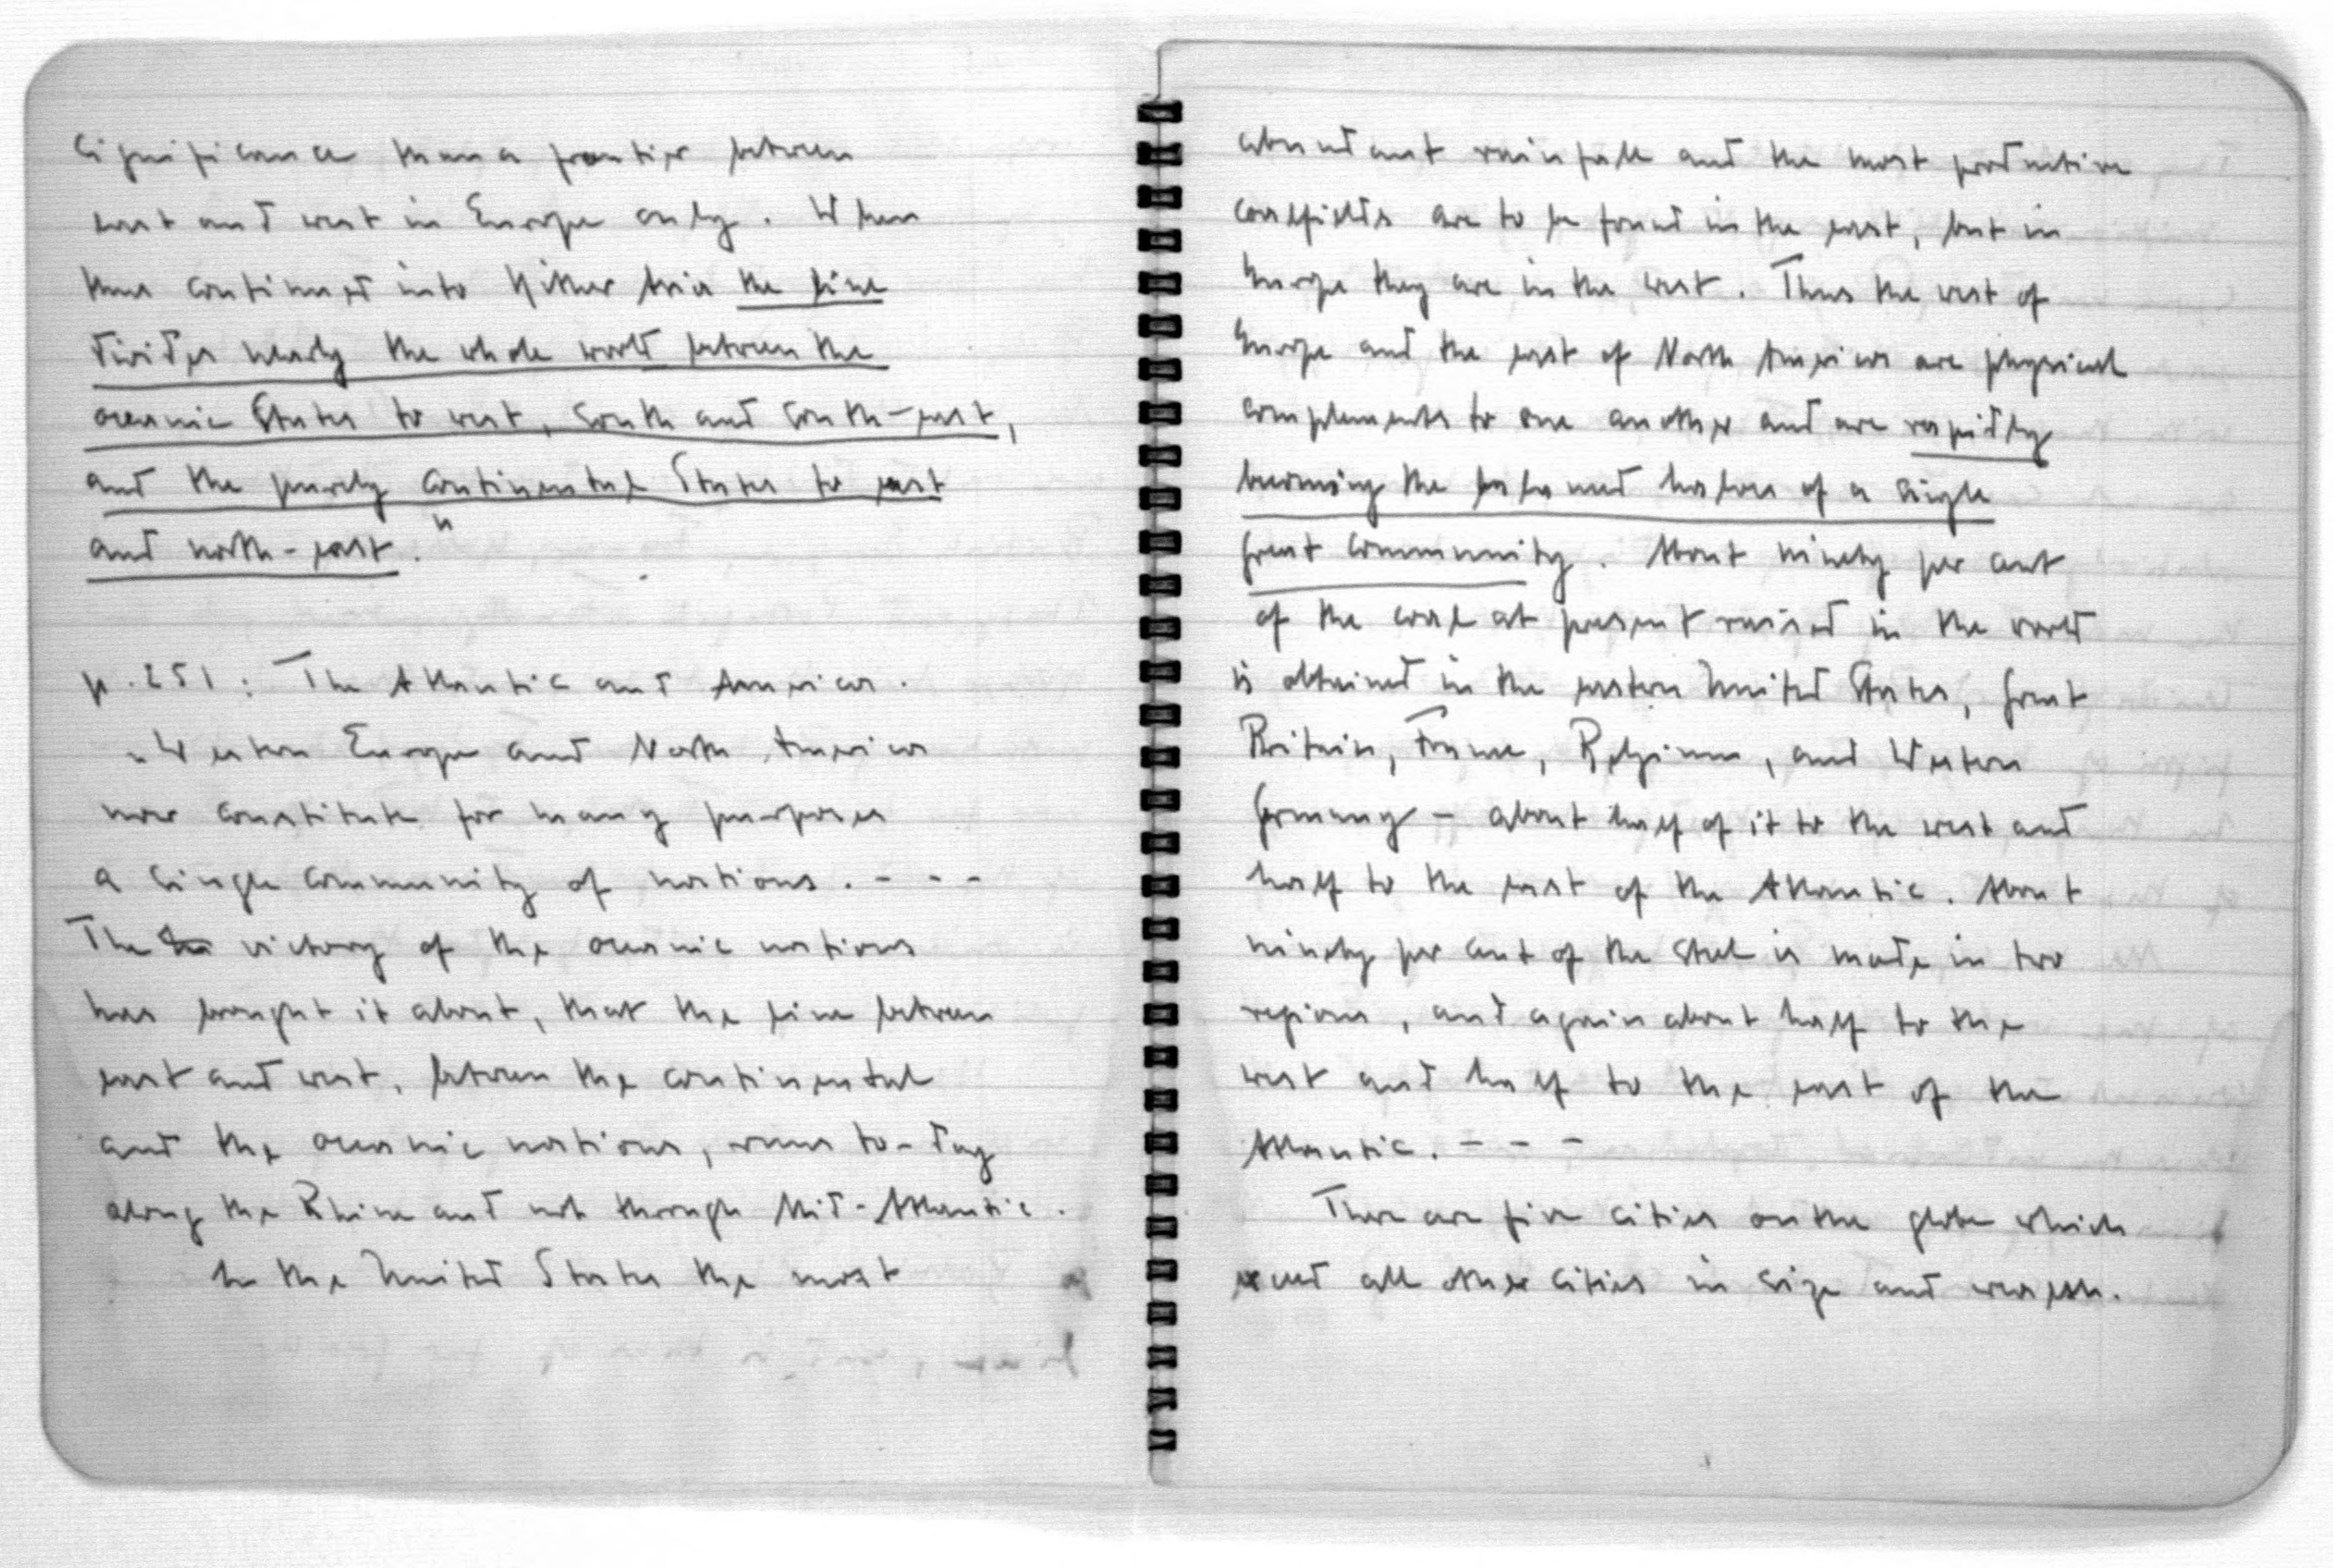 significance than a frontier between
east and west in Europe only. When
thus continued into Hither Asia the line
divides nearly the whole world between the
oceanic States to west, south and south-east,
and the purely continental States to east
and north-east."
p. 251: The Atlantic and America.
"Western Europe and North America
now constitute for many purposes
a single community of nations. - - -
The victory of the oceanic nations
has brought it about, that the line between
east and west, between the continental
and the oceanic nations, runs to-day
along the Rhine and not through Mid-Atlantic.
In the United States the most
abundant rainfall and the most productive
coalfields are to be found in the east, but in
Europe they are in the west. Thus the west of
Europe and the east of North America are physical
complements to one another and are rapidly
becoming the balanced halves of a single
great community. About ninety per cent
of the coal at present raised in the world
is obtained in the eastern United States, Great
Britain, France, Belgium, and Western
Germany - about half of it to the west and
half to the east of the Atlantic. About
ninety per cent of the steel is made in two
regions, and again about half to the
west and half to the east of the
Atlantic. - - -
There are five cities on the globe which
exceed all other cities in size and wealth.